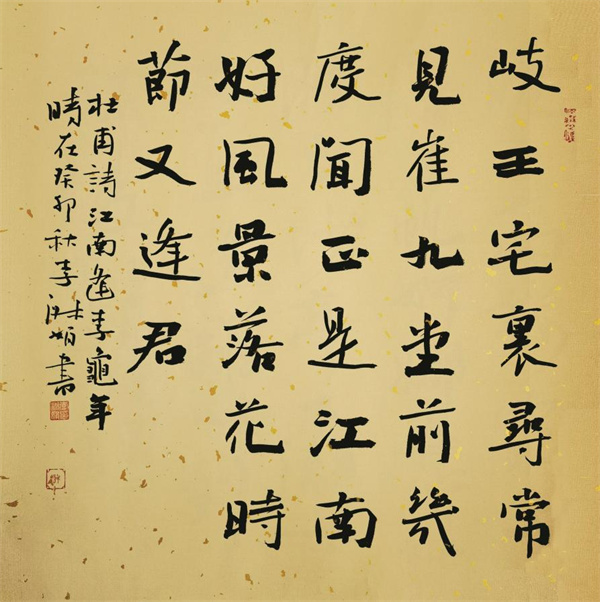 岐王宅裏尋常
見崔九堂前幾
度聞正是江南
好風景落花時
節又逢君
杜甫詩江南逢李龜年
時在癸卯秋李書